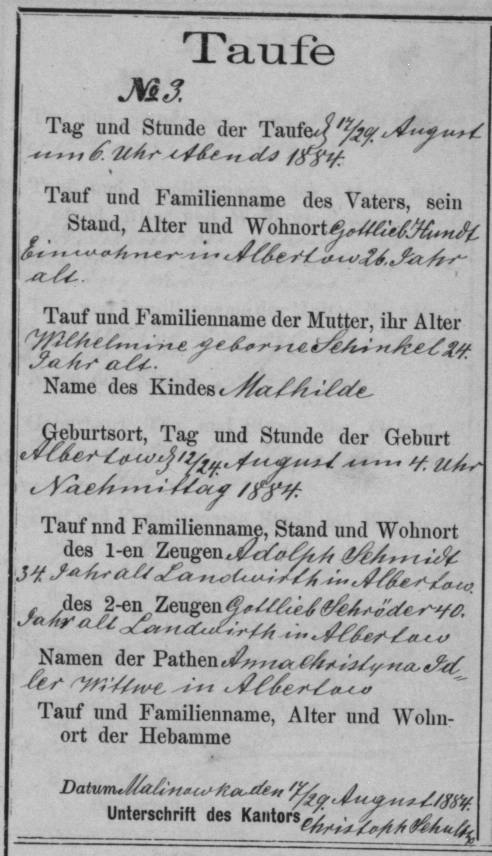 Taufe
No 3.
Tag und Stunde der Taufe d 17/29. August
um 6. Uhr Abends 1884.
Tauf und Familienname des Vaters, sein
Stand, Alter und Wohnort Gottlieb Hundt
Einwohner in Albertow 26. Jahr
alt.
Tauf und Familienname der Mutter, ihr Alter
Wilhelmine geborne Schinkel 24.
Jahr alt.
Name des Kindes Mathilde
Geburtsort, Tag und Stunde der Geburt
Albertow d 12/24. August um 4. Uhr
Nachmittag 1884.
Tauf nnd Familienname, Stand und Wohnort
des 1-en Zeugen Adolph Schmidt
34. Jahr alt Landwirth in Albertow.
des 2-en Zeugen Gottlieb Schröder 40.
Jahr alt Landwirth in Albertow
Namen der Pathen Anna Christyna Id=
ler Wittwe in Albertow
Tauf und Familienname, Alter und Wohn-
ort der Hebamme
Datum Malinowka den 17/29. August 1884.
Unterschrift des Kantors Christoph Schultz